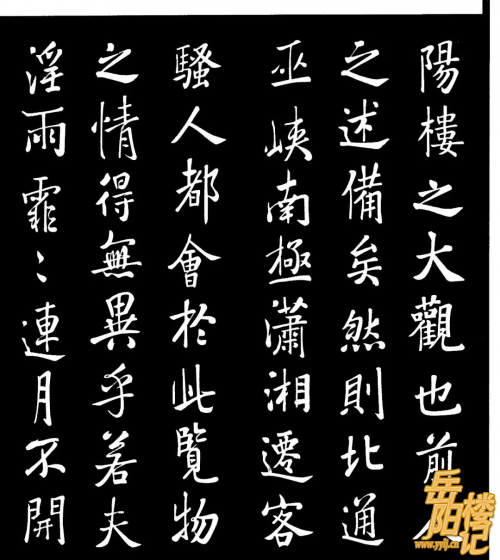 陽樓之大觀也前人
之述備矣然則北通
巫峽南極瀟湘遷客
騷人都會於此覽物
之情得無異乎若夫
淫雨霏〻連月不開
岳阳楼记
www.yylj.cn